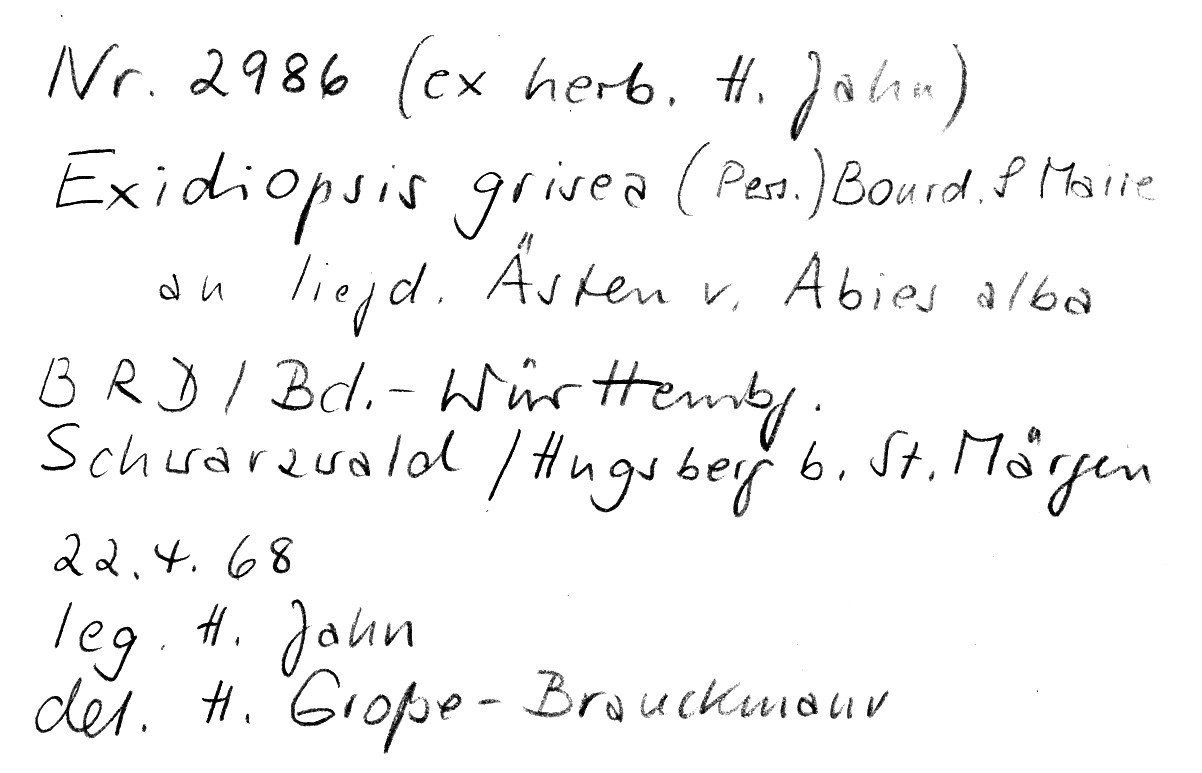 Nr. 2986 (ex herb. H. Jahn)
Exidiopsis grisea (Pers.) Bourd. & Maire
an liegd. Ästen v. Abies alba
BRD / Bd.-Württembg.
Schwarzwald / Hugsberg b. St. Märgen
22.4.68
leg. H. Jahn
det. H. Große-Brauckmann